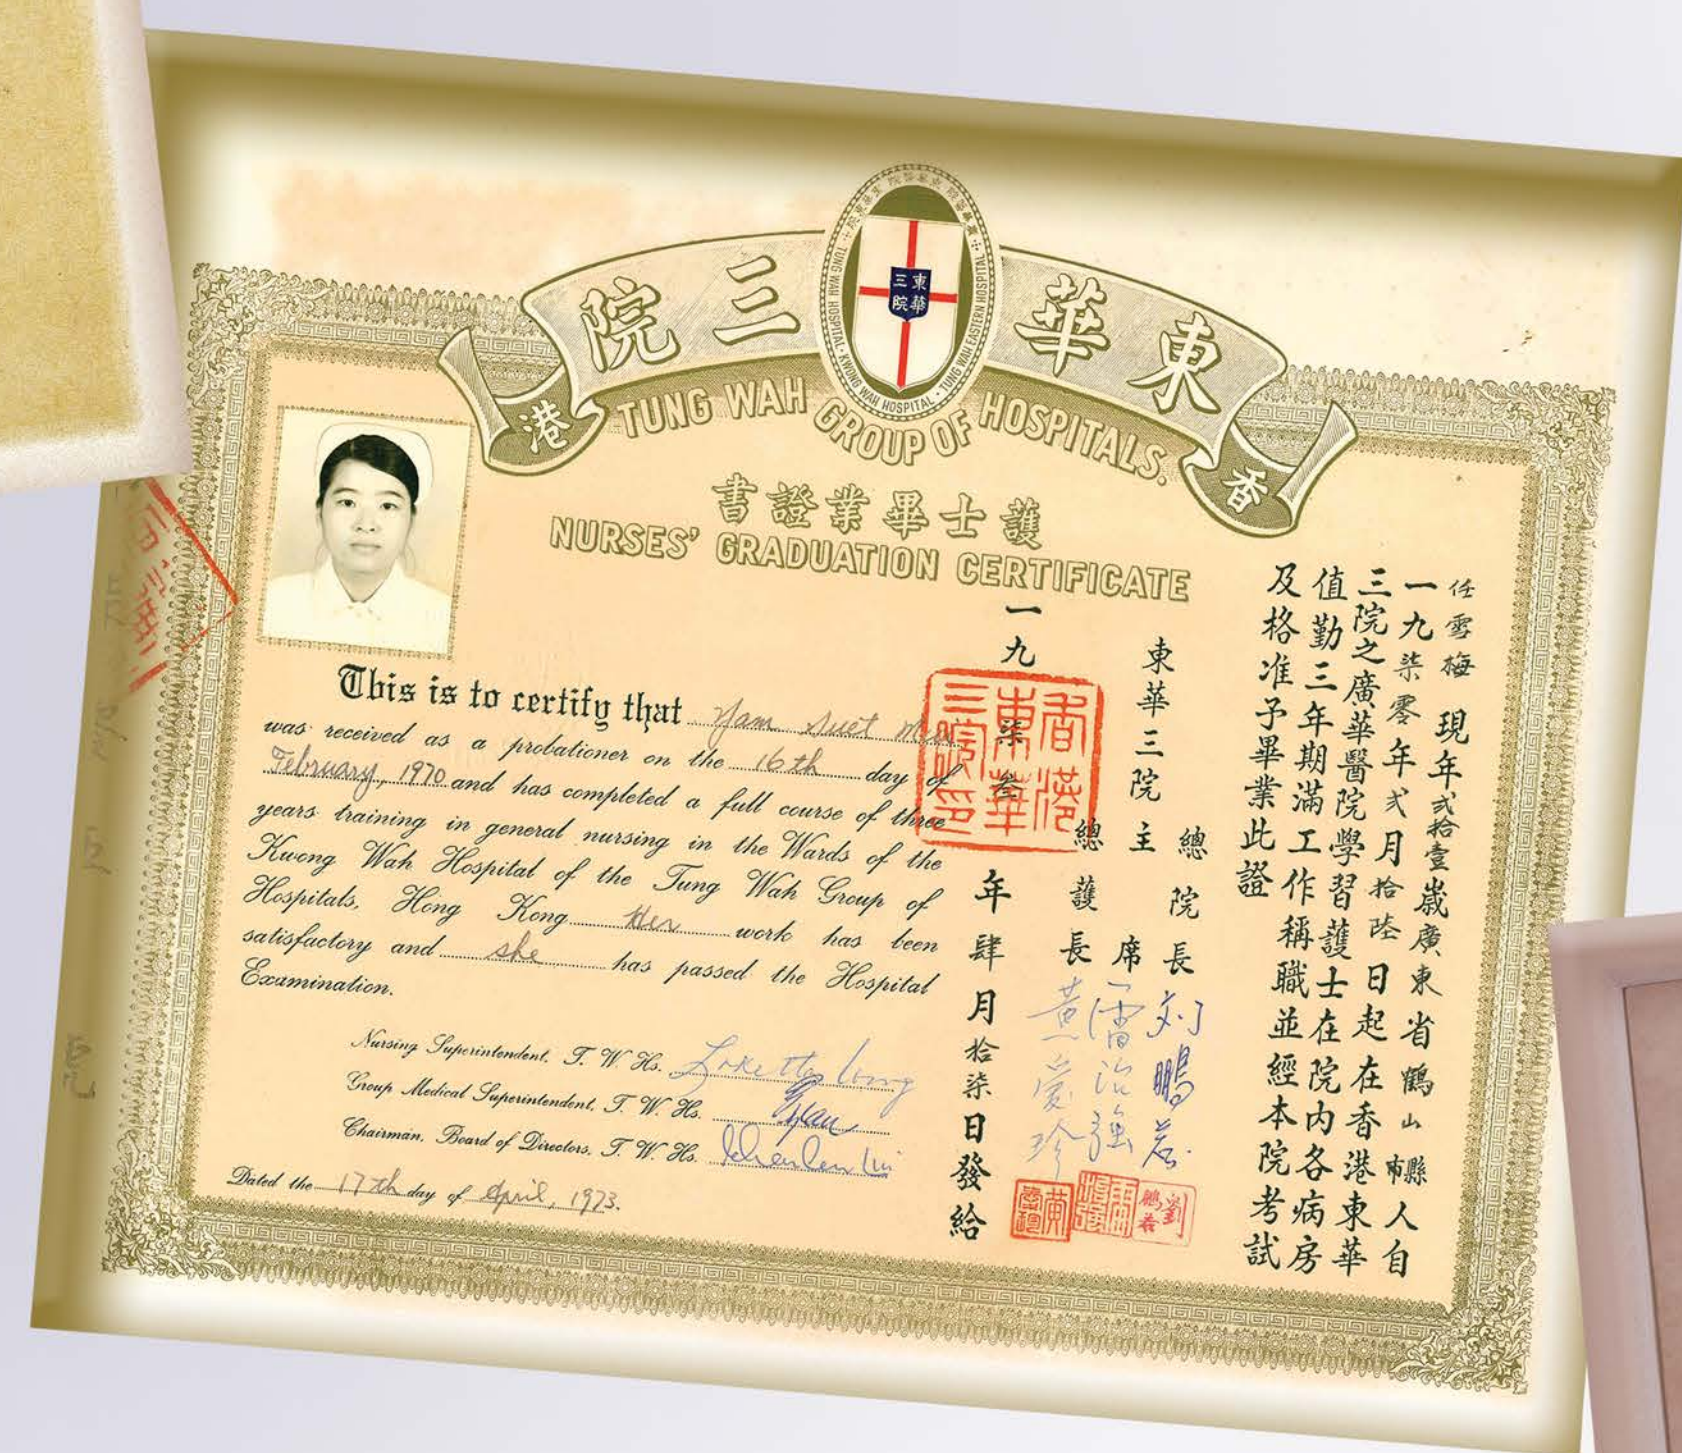 香港
東華三院
東華三院
TUNG WAH HOSPITAL · KWONG WAH HOSPITAL · TUNG WAH EASTERN HOSPITAL
TUNG WAH GROUP OF HOSPITALS.
護士畢業證書
NURSES' GRADUATION CERTIFICATE
This is to certify that Yam Suet Mui
was received as a probationer on the 16th day of
February, 1970 and has completed a full course of three
years training in general nursing in the Wards of the
Kwong Wah Hospital of the Tung Wah Group of
Hospitals, Hong Kong Her work has been
satisfactory and she has passed the Hospital
Examination.
Nursing Superintendent, T. W. Hs.
Group Medical Superintendent, T. W. Hs.
Chairman, Board of Directors, T. W. Hs.
Dated the 17th day of April, 1973.
任雪梅現年弍拾壹歲廣東省鶴山市縣人自
一九柒零年弍月拾陸日起在香港東華
三院之廣華醫院學習護士在院內各病房
值勤三年期滿工作稱職並經本院考試
及格准予畢業此證
總院長劉鵬若
東華三院主席雷治強
總護長黃愛珍
一九柒叁年肆月拾柒日發給
香港東華三院印